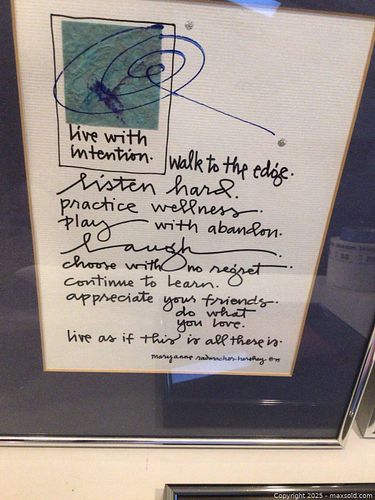 live with
intention.
walk to the edge.
listen hard.
practice wellness.
play with abandon.
Laugh.
choose with no regret
continue to learn.
appreciate your friends.
do what
you love.
live as if this is all there is.
maryanne radmacher-hershey
Copyright 2025 - maxsold.com